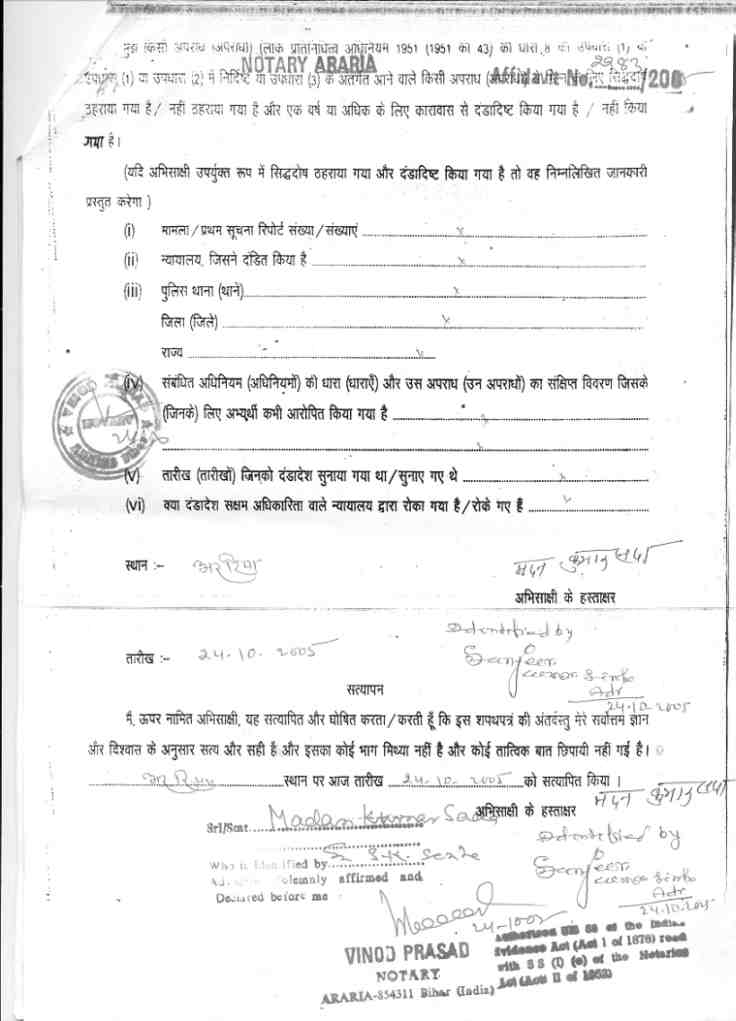 मुझे किसी अपराध (अपराधों) (लोक प्रतिनिधित्व अधिनियम 1951 (1951 का 43) की धारा 8 की उपधारा (1) या
NOTARY ARARIA
2983
Affidavit No. /200
उपधारा (1) या उपधारा (2) में निर्दिष्ट या उपधारा (3) के अंतर्गत आने वाले किसी अपराध
ठहराया गया है / नहीं ठहराया गया है और एक वर्ष या अधिक के लिए कारावास से दंडादिष्ट किया गया है / नहीं किया
गया है।
(यदि अभिसाक्षी उपर्युक्त रूप में सिद्धदोष ठहराया गया और दंडादिष्ट किया गया है तो वह निम्नलिखित जानकारी
प्रस्तुत करेगा )
(i) मामला/प्रथम सूचना रिपोर्ट संख्या/संख्याएं x
(ii) न्यायालय, जिसने दंडित किया है x
(iii) पुलिस थाना (थानें) x
जिला (जिले) x
राज्य x
(iv) संबंधित अधिनियम (अधिनियमों) की धारा (धाराएँ) और उस अपराध (उन अपराधों) का संक्षिप्त विवरण जिसके
(जिनके) लिए अभ्यर्थी कभी आरोपित किया गया है x
x
(v) तारीख (तारीखों) जिनको दंडादेश सुनाया गया था/सुनाए गए थे x
(vi) क्या दंडादेश सक्षम अधिकारिता वाले न्यायालय द्वारा रोका गया है/रोके गए हैं x
स्थान :- अररिया
मदन कुमार सादा
अभिसाक्षी के हस्ताक्षर
Identified by
तारीख :- 24.10.2005
Sanjeev
Kumar Sinha
Adv
24.10.2005
सत्यापन
मैं, ऊपर नामित अभिसाक्षी, यह सत्यापित और घोषित करता/करती हूँ कि इस शपथपत्र की अंतर्वस्तु मेरे सर्वोत्तम ज्ञान
और विश्वास के अनुसार सत्य और सही है और इसका कोई भाग मिथ्या नहीं है और कोई तात्विक बात छिपायी नहीं गई है।
अररिया स्थान पर आज तारीख 24.10.2005 को सत्यापित किया ।
मदन कुमार सादा
अभिसाक्षी के हस्ताक्षर
Sri/Smt. Madan Kumar Sada
Identified by
Who is Identified by S.K. Sinha
Sanjeev
Kumar Sinha
Adv
24.10.2005
Solemnly affirmed and
Declared before me
VINOD PRASAD
NOTARY
ARARIA-854311 Bihar (India)
Authorised U/S of the Indian
Evidence Act (Act 1 of 1876) read
with S 8 (1) (e) of the Notaries